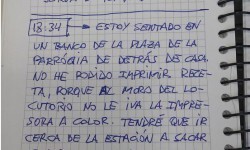 18:34 → ESTOY SENTADO EN
UN BANCO DE LA PLAZA DE LA
PARRÒQUIA DE DETRÁS DE CASA.
NO HE PODIDO IMPRIMIR RECE-
TA, PORQUE AL MORO DEL LO-
CUTORIO NO LE IVA LA IMPRE-
SORA A COLOR. TENDRÉ QUE IR
CERCA DE LA ESTACIÓN A SACAR